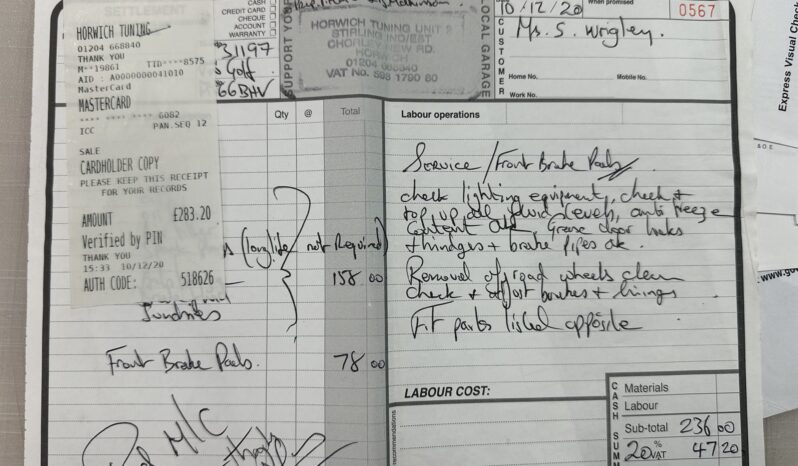 SETTLEMENT
CASH
CREDIT CARD
CHEQUE
ACCOUNT
WARRANTY
31197
Golf
66BHV
SUPPORT YOUR
LOCAL GARAGE
HORWICH TUNING UNIT
STIRLING IND/EST
CHORLEY NEW RD.
HORWICH
01204 668840
VAT No. 598 1790 80
10/12/20
When promised
0567
CUSTOMER
Ms. S. Wrigley.
Home No.
Mobile No.
Work No.
Express Visual Check
E & O E
www.gov
HORWICH TUNING
01204 668840
THANK YOU
M**19861 TID****8575
AID : A0000000041010
MasterCard
MASTERCARD
**** **** **** 6082
ICC PAN.SEQ 12
SALE
CARDHOLDER COPY
PLEASE KEEP THIS RECEIPT
FOR YOUR RECORDS
AMOUNT £283.20
Verified by PIN
THANK YOU
15:33 10/12/20
AUTH CODE: 518626
Qty @ Total
(longlife not Required)
158 00
Sundries
Front Brake Pads. 78 00
Pd M/C
thanks
Labour operations
Service / Front Brake Pads
check lighting equipment, check +
top up all fluid levels, anti freeze
content ok, Grease door locks
+ hinges + brake pipes ok.
Removal of road wheels clean
check + adjust brakes + linings
Fit parts listed opposite
LABOUR COST:
recommendations
CASH SUMM
Materials
Labour
Sub-total 236 00
20 % VAT 47 20